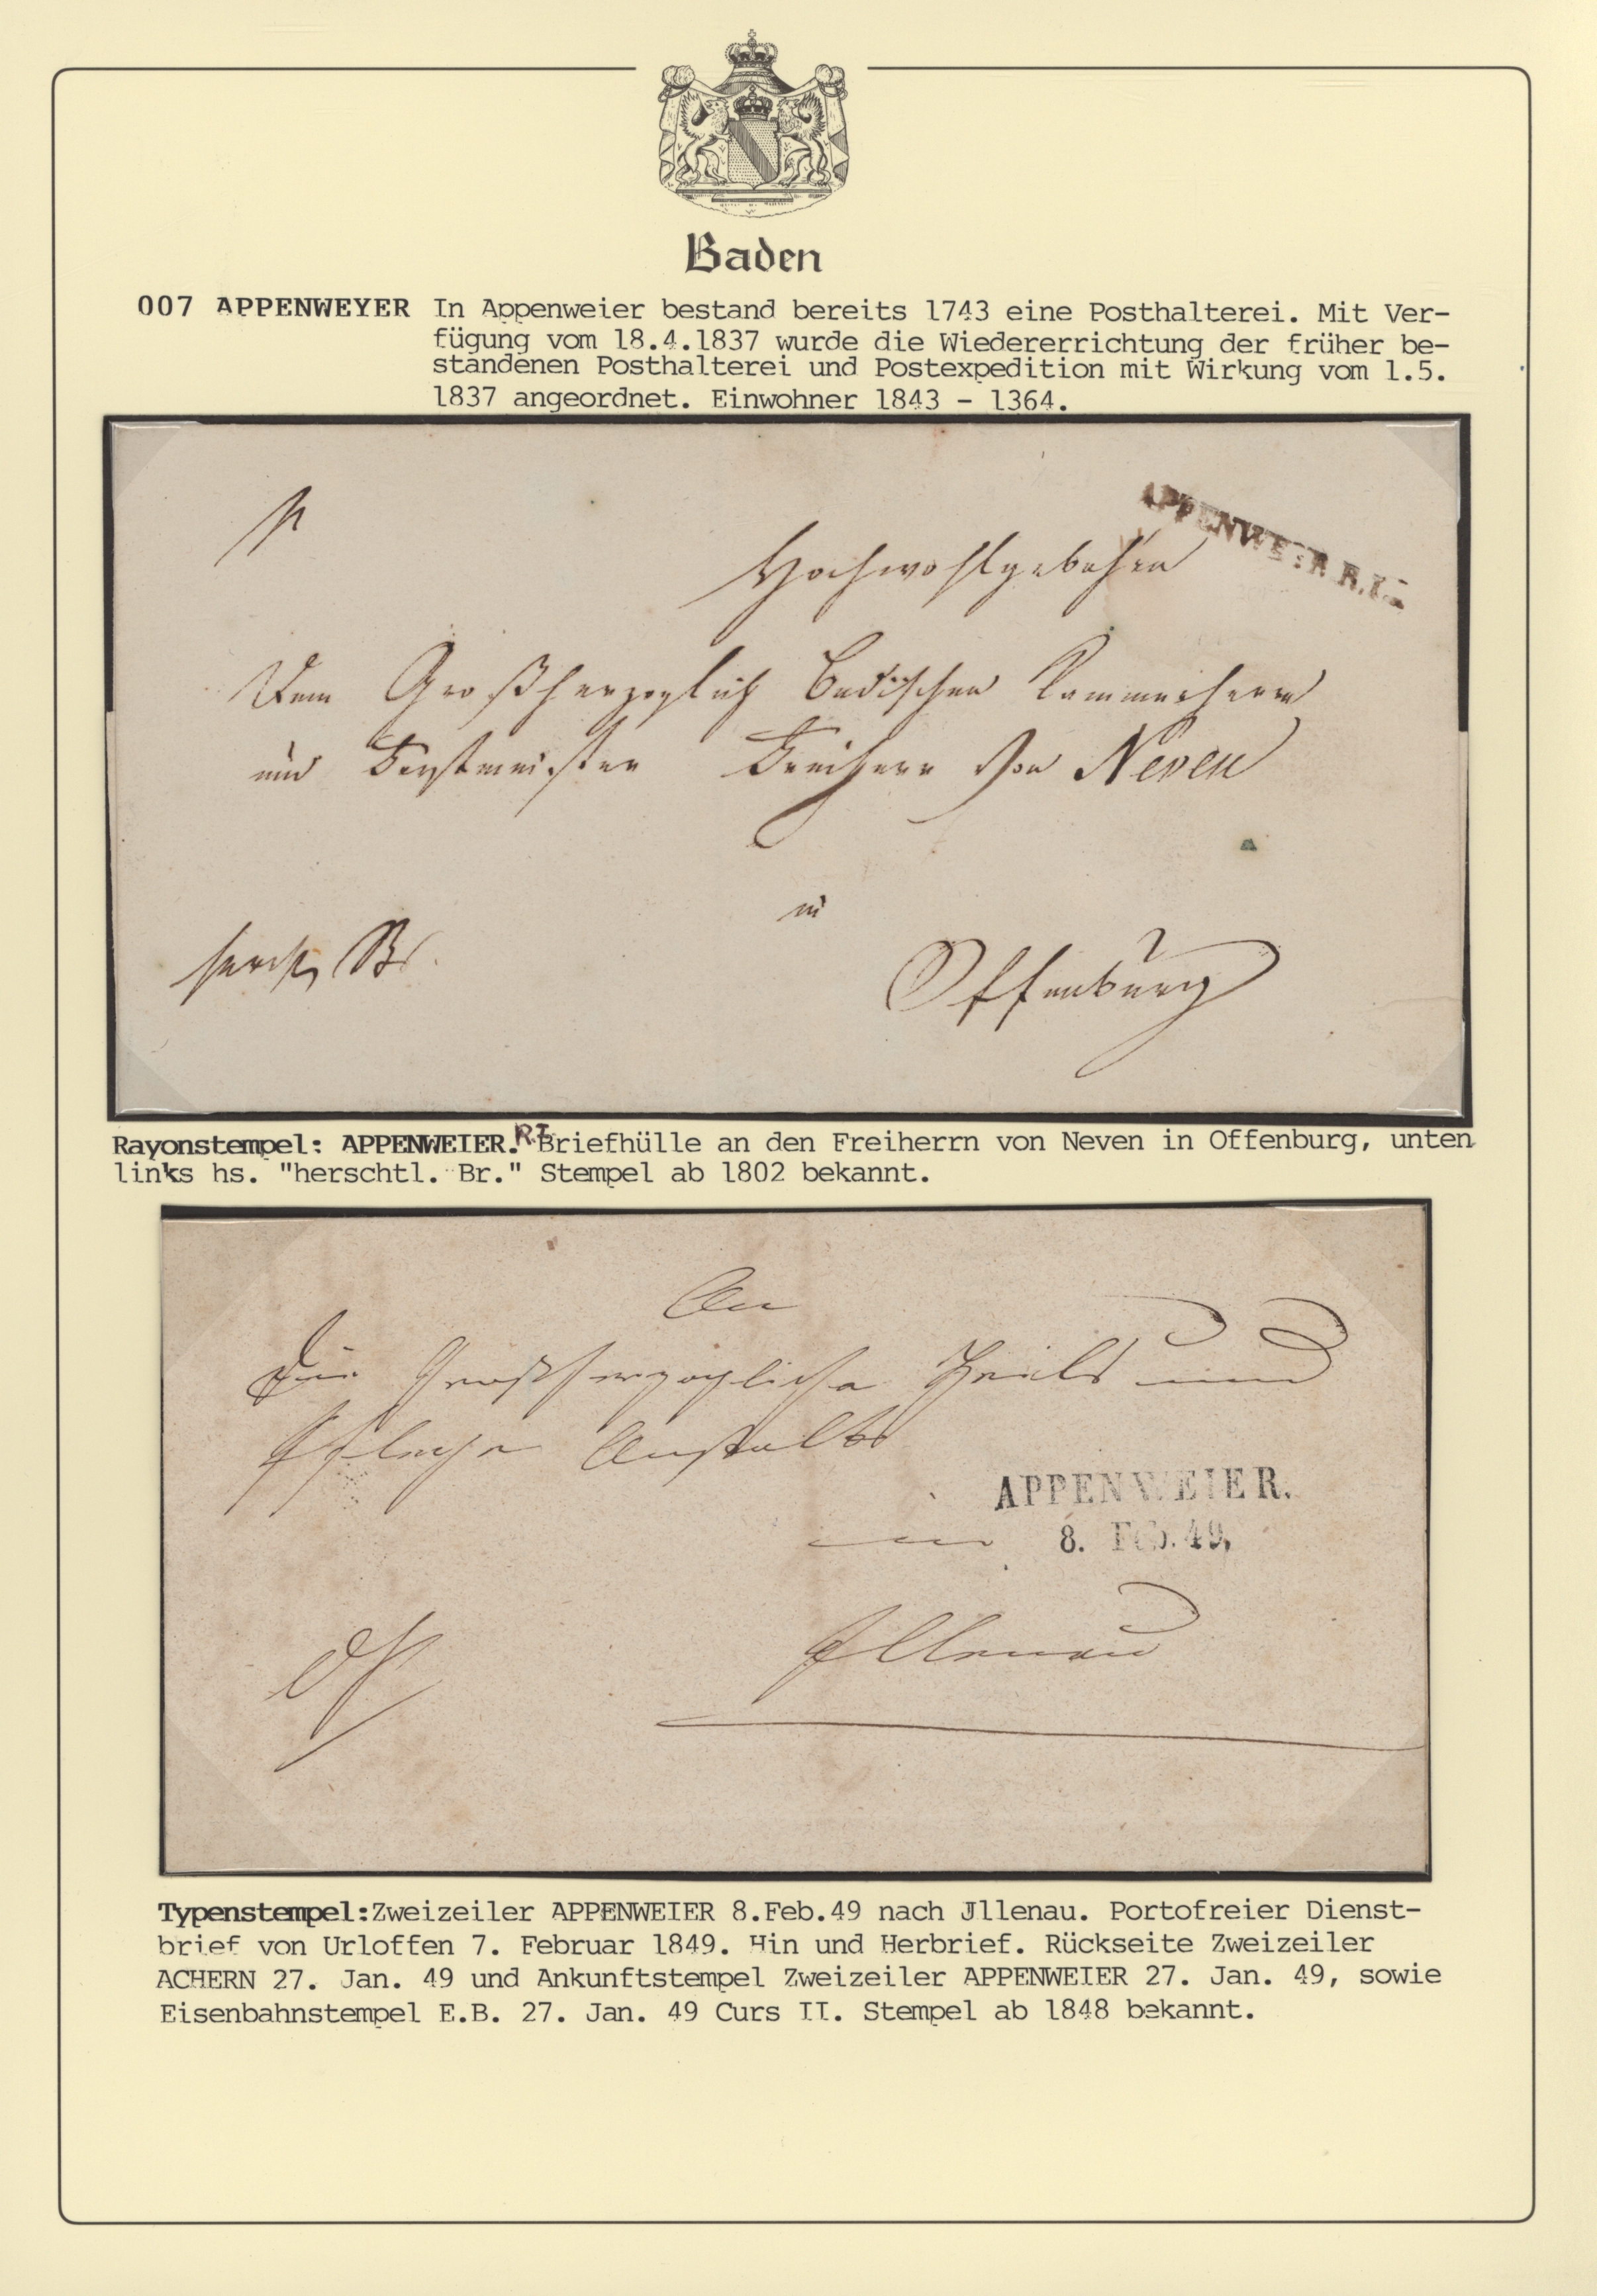 Baden
007 APPENWEYER In Appenweier bestand bereits 1743 eine Posthalterei. Mit Ver-
fügung vom 18.4.1837 wurde die Wiedererrichtung der früher be-
standenen Posthalterei und Postexpedition mit Wirkung vom 1.5.
1837 angeordnet. Einwohner 1843 - 1364.
APPENWEIER.R.I.
Hochwohlgebohren
Dem Großherzoglich Badischen Kammerherrn
und Forstmeister Freiherr von Neven
in
Offenburg
Rayonstempel: APPENWEIER.R.I. Briefhülle an den Freiherrn von Neven in Offenburg, unten
links hs. "herschtl. Br." Stempel ab 1802 bekannt.
An
Die Großherzogliche Heil und
Pflege Anstalt
APPENWEIER.
8. Feb. 49,
Illenau
Typenstempel:Zweizeiler APPENWEIER 8.Feb.49 nach Jllenau. Portofreier Dienst-
brief von Urloffen 7. Februar 1849. Hin und Herbrief. Rückseite Zweizeiler
ACHERN 27. Jan. 49 und Ankunftstempel Zweizeiler APPENWEIER 27. Jan. 49, sowie
Eisenbahnstempel E.B. 27. Jan. 49 Curs II. Stempel ab 1848 bekannt.